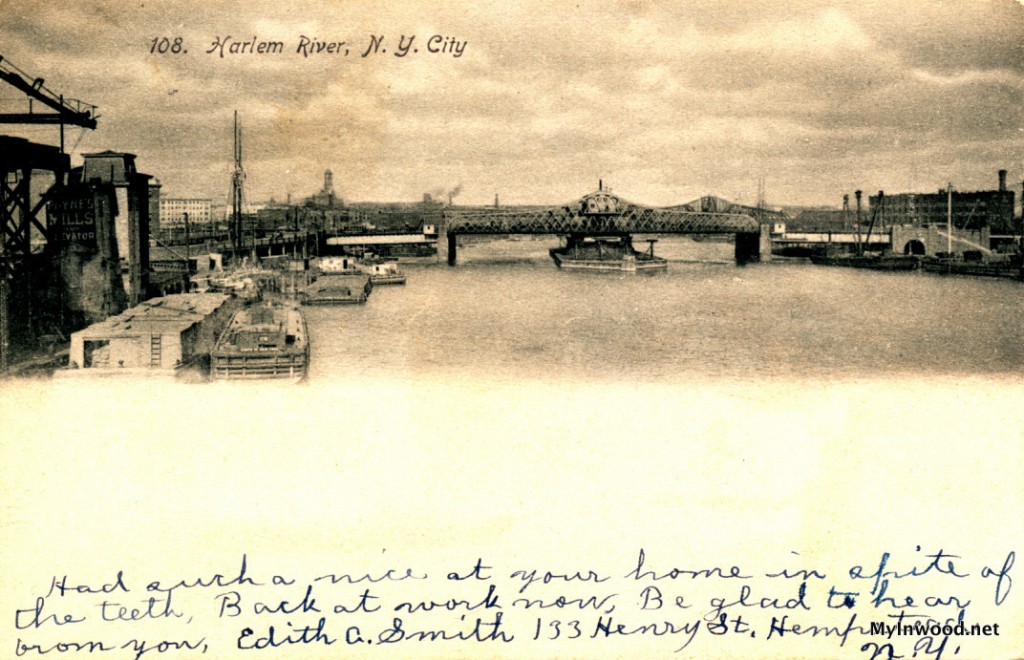 108. Harlem River, N. Y. City
MILLS
ELEVATOR
Had such a nice at your home in spite of
the teeth, Back at work now, Be glad to hear
from you, Edith A. Smith 133 Henry St. Hempstead.
N.Y.
MyInwood.net